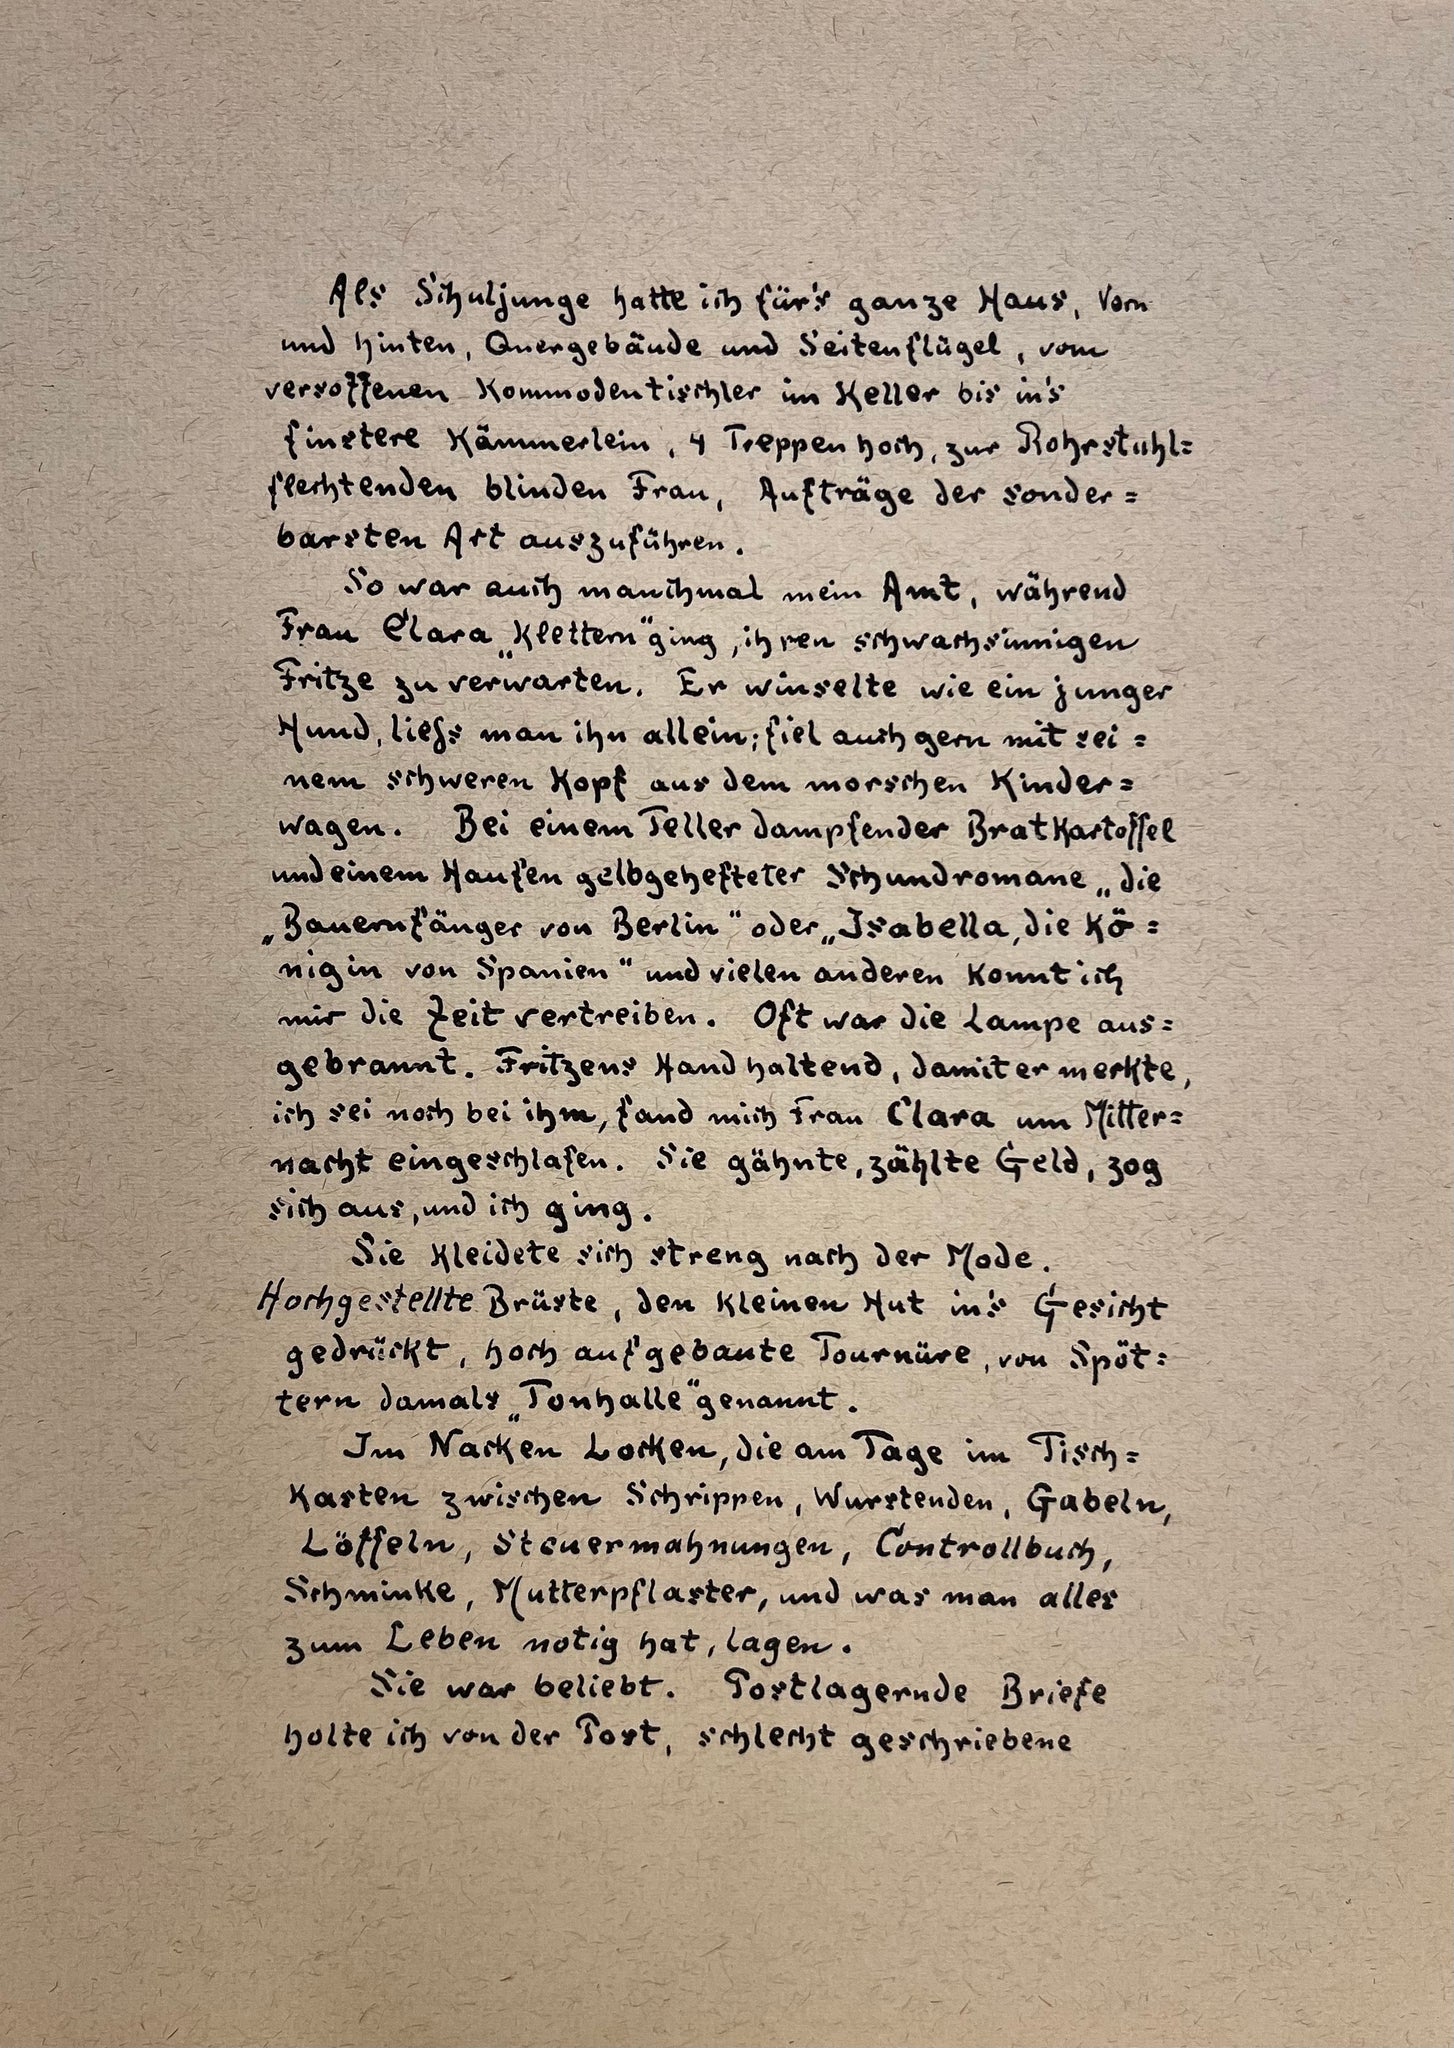 Als Schuljunge hatte ich für's ganze Haus, vorn
und hinten, Quergebäude und Seitenflügel, vom
versoffenen Kommodentischler im Keller bis in's
finstere Kämmerlein, 4 Treppen hoch, zur Rohrstuhl=
flechtenden blinden Frau, Aufträge der sonder=
barsten Art auszuführen.
So war auch manchmal mein Amt, während
Frau Clara „Klettern" ging, ihren schwachsinnigen
Fritze zu verwarten. Er winselte wie ein junger
Hund, liess man ihn allein; fiel auch gern mit sei=
nem schweren Kopf aus dem morschen Kinder=
wagen. Bei einem Teller dampfender Bratkartoffel
und einem Haufen gelbgehefteter Schundromane „die
„Bauernfänger von Berlin" oder „Isabella, die Kö=
nigin von Spanien" und vielen anderen konnt ich
mir die Zeit vertreiben. Oft war die Lampe aus=
gebrannt. Fritzens Hand haltend, damit er merkte,
ich sei noch bei ihm, fand mich Frau Clara um Mitter=
nacht eingeschlafen. Sie gähnte, zählte Geld, zog
sich aus, und ich ging.
Sie kleidete sich streng nach der Mode.
Hochgestellte Brüste, den kleinen Hut in's Gesicht
gedrückt, hoch aufgebaute Tournüre, von Spöt=
tern damals „Tonhalle" genannt.
Im Nacken Locken, die am Tage im Tisch=
kasten zwischen Schrippen, Wurstenden, Gabeln,
Löffeln, Steuermahnungen, Controllbuch,
Schminke, Mutterpflaster, und was man alles
zum Leben notig hat, lagen.
Sie war beliebt. Postlagernde Briefe
holte ich von der Post, schlecht geschriebene